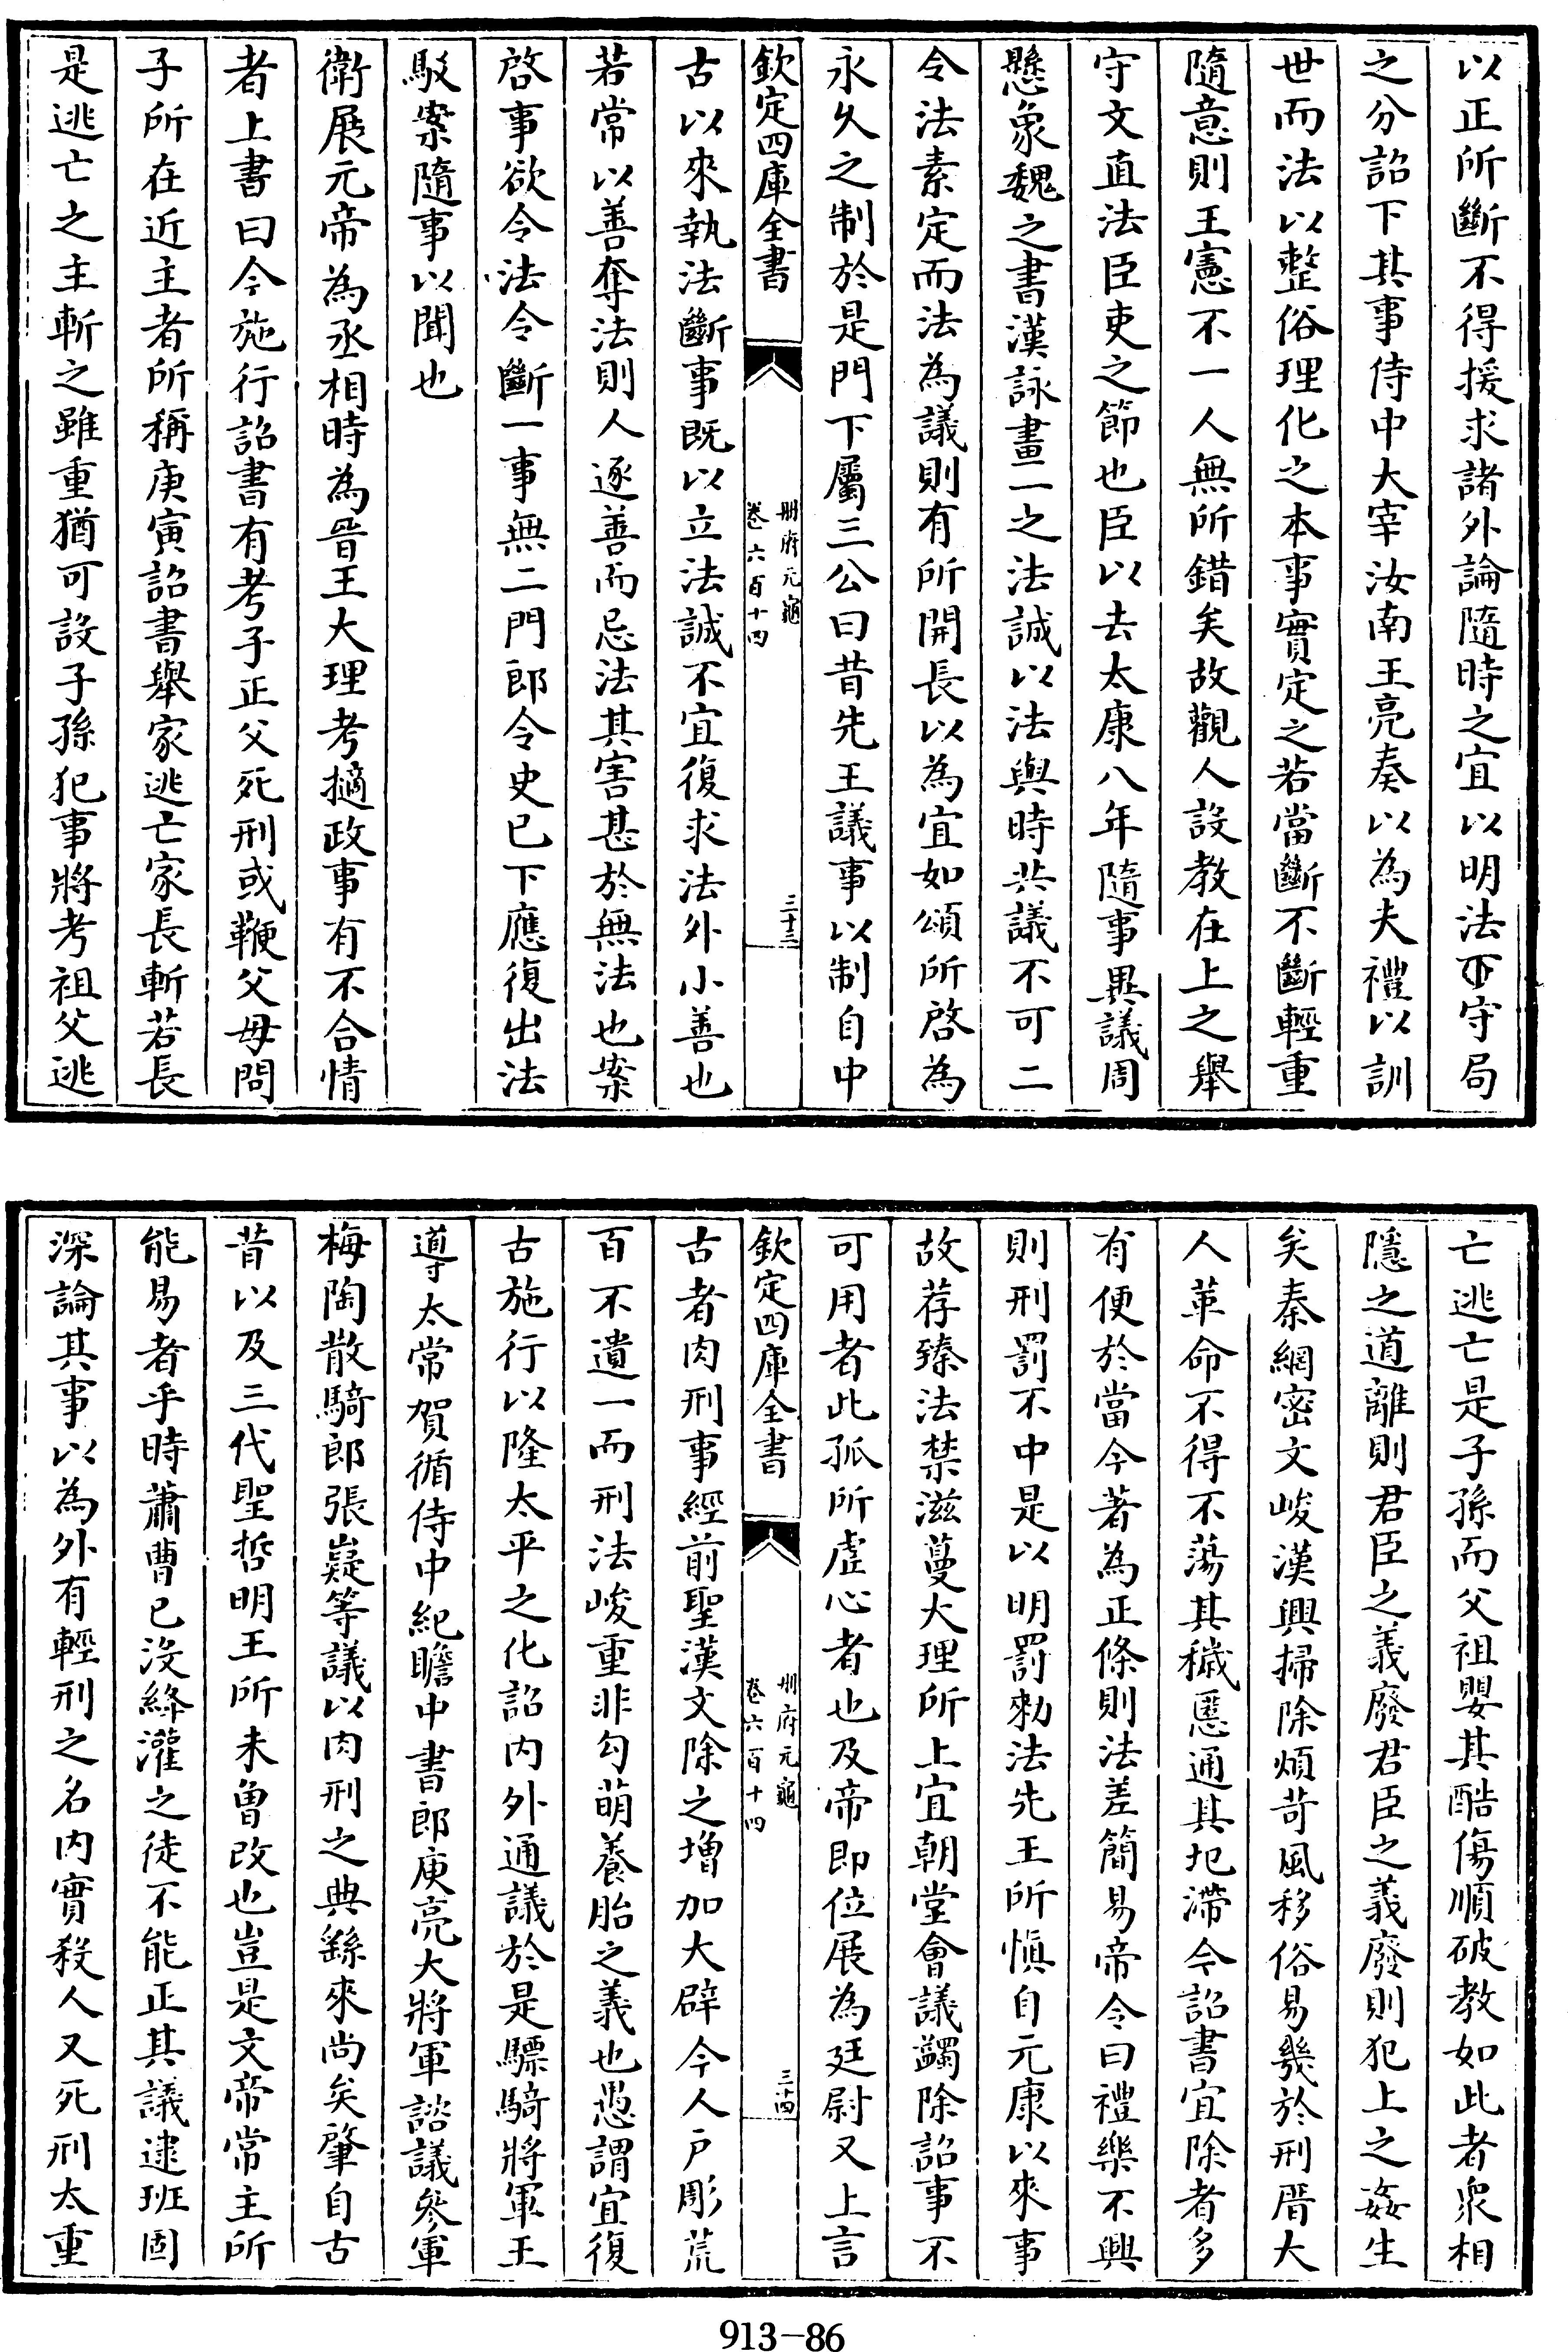 以正所斷不得援求諸外論隨時之宜以明法下守局
之分詔下其事侍中大宰汝南王亮奏以為夫禮以訓
世而法以整俗理化之本事實定之若當斷不斷輕重
隨意則王憲不一人無所錯矣故觀人設教在上之舉
守文直法臣吏之節也臣以去太康八年隨事異議周
懸象魏之書漢詠畫一之法誠以法與時共議不可二
令法素定而法為議則有所開長以為宜如頌所啓為
永久之制於是門下屬三公曰昔先王議事以制自中
欽定四庫全書
冊府元龜
卷六百十四
三十三
古以來執法斷事既以立法誠不宜復求法外小善也
若常以善奪法則人逐善而忌法其害甚於無法也案
啓事欲令法令斷一事無二門郎令史已下應復出法
駁案隨事以聞也
衛展元帝為丞相時為晉王大理考擿政事有不合情
者上書曰今施行詔書有考子正父死刑或鞭父母問
子所在近主者所稱庚寅詔書舉家逃亡家長斬若長
是逃亡之主斬之雖重猶可設子孫犯事將考祖父逃
亡逃亡是子孫而父祖嬰其酷傷順破教如此者衆相
隱之道離則君臣之義廢君臣之義廢則犯上之姦生
矣秦網密文峻漢興掃除煩苛風移俗易幾於刑厝大
人革命不得不蕩其穢慝通其圯滯今詔書宜除者多
有便於當今著為正條則法差簡易帝令曰禮樂不興
則刑罰不中是以明罰勑法先王所慎自元康以來事
故荐臻法禁滋蔓大理所上宜朝堂會議蠲除詔事不
可用者此孤所虛心者也及帝即位展為廷尉又上言
欽定四庫全書
冊府元龜
卷六百十四
三十四
古者肉刑事經前聖漢文除之增加大辟今人戶彫荒
百不遺一而刑法峻重非勾萌養胎之義也愚謂宜復
古施行以隆太平之化詔内外通議於是驃騎將軍王
導太常賀循侍中紀瞻中書郎庾亮大將軍諮議參軍
梅陶散騎郎張嶷等議以肉刑之典繇來尚矣肇自古
昔以及三代聖哲明王所未曾改也豈是文帝常主所
能易者乎時蕭曹已没絳灌之徒不能正其議逮班固
深論其事以為外有輕刑之名内實殺人又死刑太重
913-86